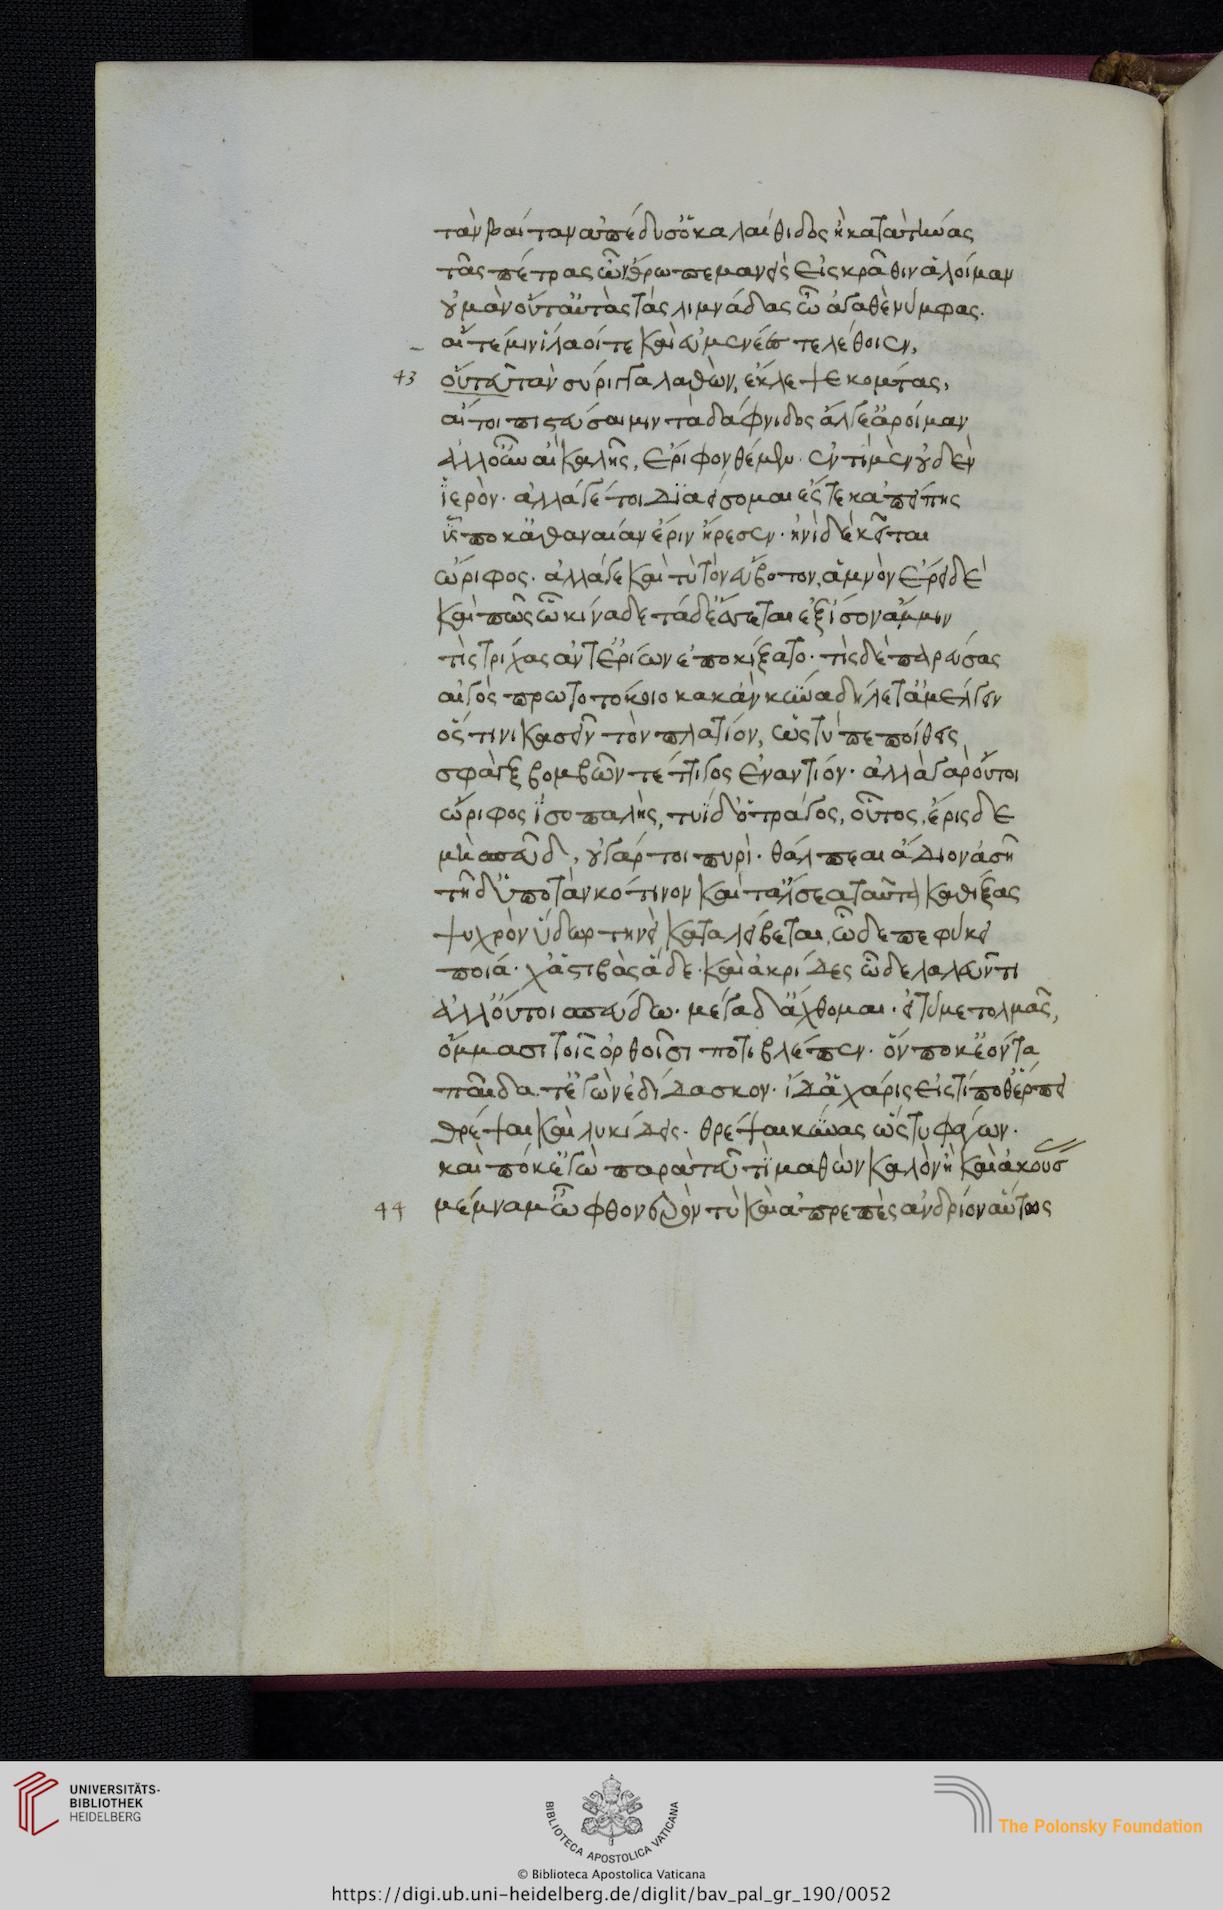 τὰν βαίταν ἀπέδυσ' ὁ καλαίθιδος ἢ κατὰ τήνας
τᾶς πέτρας ὦνθρωπε μανεὶς εἰς κρᾶθιν ἁλοίμαν
οὐ μὰν οὔτ' αὐτὰς τὰς λιμνάδας ὦ ἀγαθὲ νύμφας.
αἵ τέ μιν ἵλαοί τε καὶ εὐμενέες τελέθοιεν,
43 οὔτευ τὰν σύριγγα λαθὼν, ἔκλεψε κομάτας,
αἴ τοι πιστεύσαιμιν τὰ δάφνιδος ἄλγε' ἀροίμαν
ἀλλ' ὦν αἴκα λῆς, ἔριφον θέμεν. ἐντὶ μὲν οὐδὲν
ἱερὸν. ἀλλά γέ τοι διαείσομαι ἔστε κ' ἀπείπης
ὗς ποκ' ἀθαναίαν ἔριν ἤρεσεν. ἠνὶδε κεῖται
ὥριφος. ἀλλά γε καὶ τὺ τὸν εὔβοτον, ἀμνὸν ἔρειδε
καὶ πῶς ὦ κίναδε τάδ' ἔσσεται ἐξ ἴσον ἄμμιν
τὶς τρίχας ἀντ' ἐρίων ἐποκίξατο. τὶς δὲ παρευσας
αἰγὸς πρωτοτόκοιο κακὰν κύνα δήλετ' ἀμέλγειν
ὅς τι νικασεῖν τὸν πλατίον, ὡς τύ πεποίθεις
σφὰγξ βομβῶν τέττιγος ἐναντίον. ἀλλὰ γὰρ οὔτοι
ὥριφος ἰσοπαλὴς, τυΐδ' ὁ τράγος, οὗτος, ἔρισδε
μὴ σπεῦδ', οὐ γάρ τοι πυρὶ. θάλπεαι ἅδιον ἀσῆ
τῆδ' ὑπὸ τὰν κότινον καὶ τἄλσεα ταῦτα καθίξας
ψυχρὸν ὕδωρ τηνεὶ καταλείβεται, ὧδε πεφύκει
ποία. χἀ στιβὰς ἅδε. καὶ ἀκρίδες ὧδε λαλεῦντι
ἀλλ' οὔτοι σπεύδω. μέγα δ' ἄχθομαι. εἰ τύ με τολμᾶς,
ὄμμασι τοῖς ὀρθοῖσι ποτιβλέπεν. ὅν ποκ' ἐόντα
παῖδα τ' ἐγὼν ἐδίδασκον. ἴδ' ἁ χάρις εἰς τί ποθέρπει
θρέψαι καὶ λυκιδεῖς. θρέψαι κύνας ὥς τυ φάγων.
καὶ πόκ' ἐγὼ παρὰ τεῦ τὶ μαθὼν καλὸν ἢ καὶ ἀκούσ
44 μέμναμ' ὦ φθονερὸν τὺ καὶ ἀπρεπὲς ἀνδρίον αὔτως
UNIVERSITÄTS-
BIBLIOTHEK
HEIDELBERG
BIBLIOTECA APOSTOLICA VATICANA
© Biblioteca Apostolica Vaticana
The Polonsky Foundation
https://digi.ub.uni-heidelberg.de/diglit/bav_pal_gr_190/0052